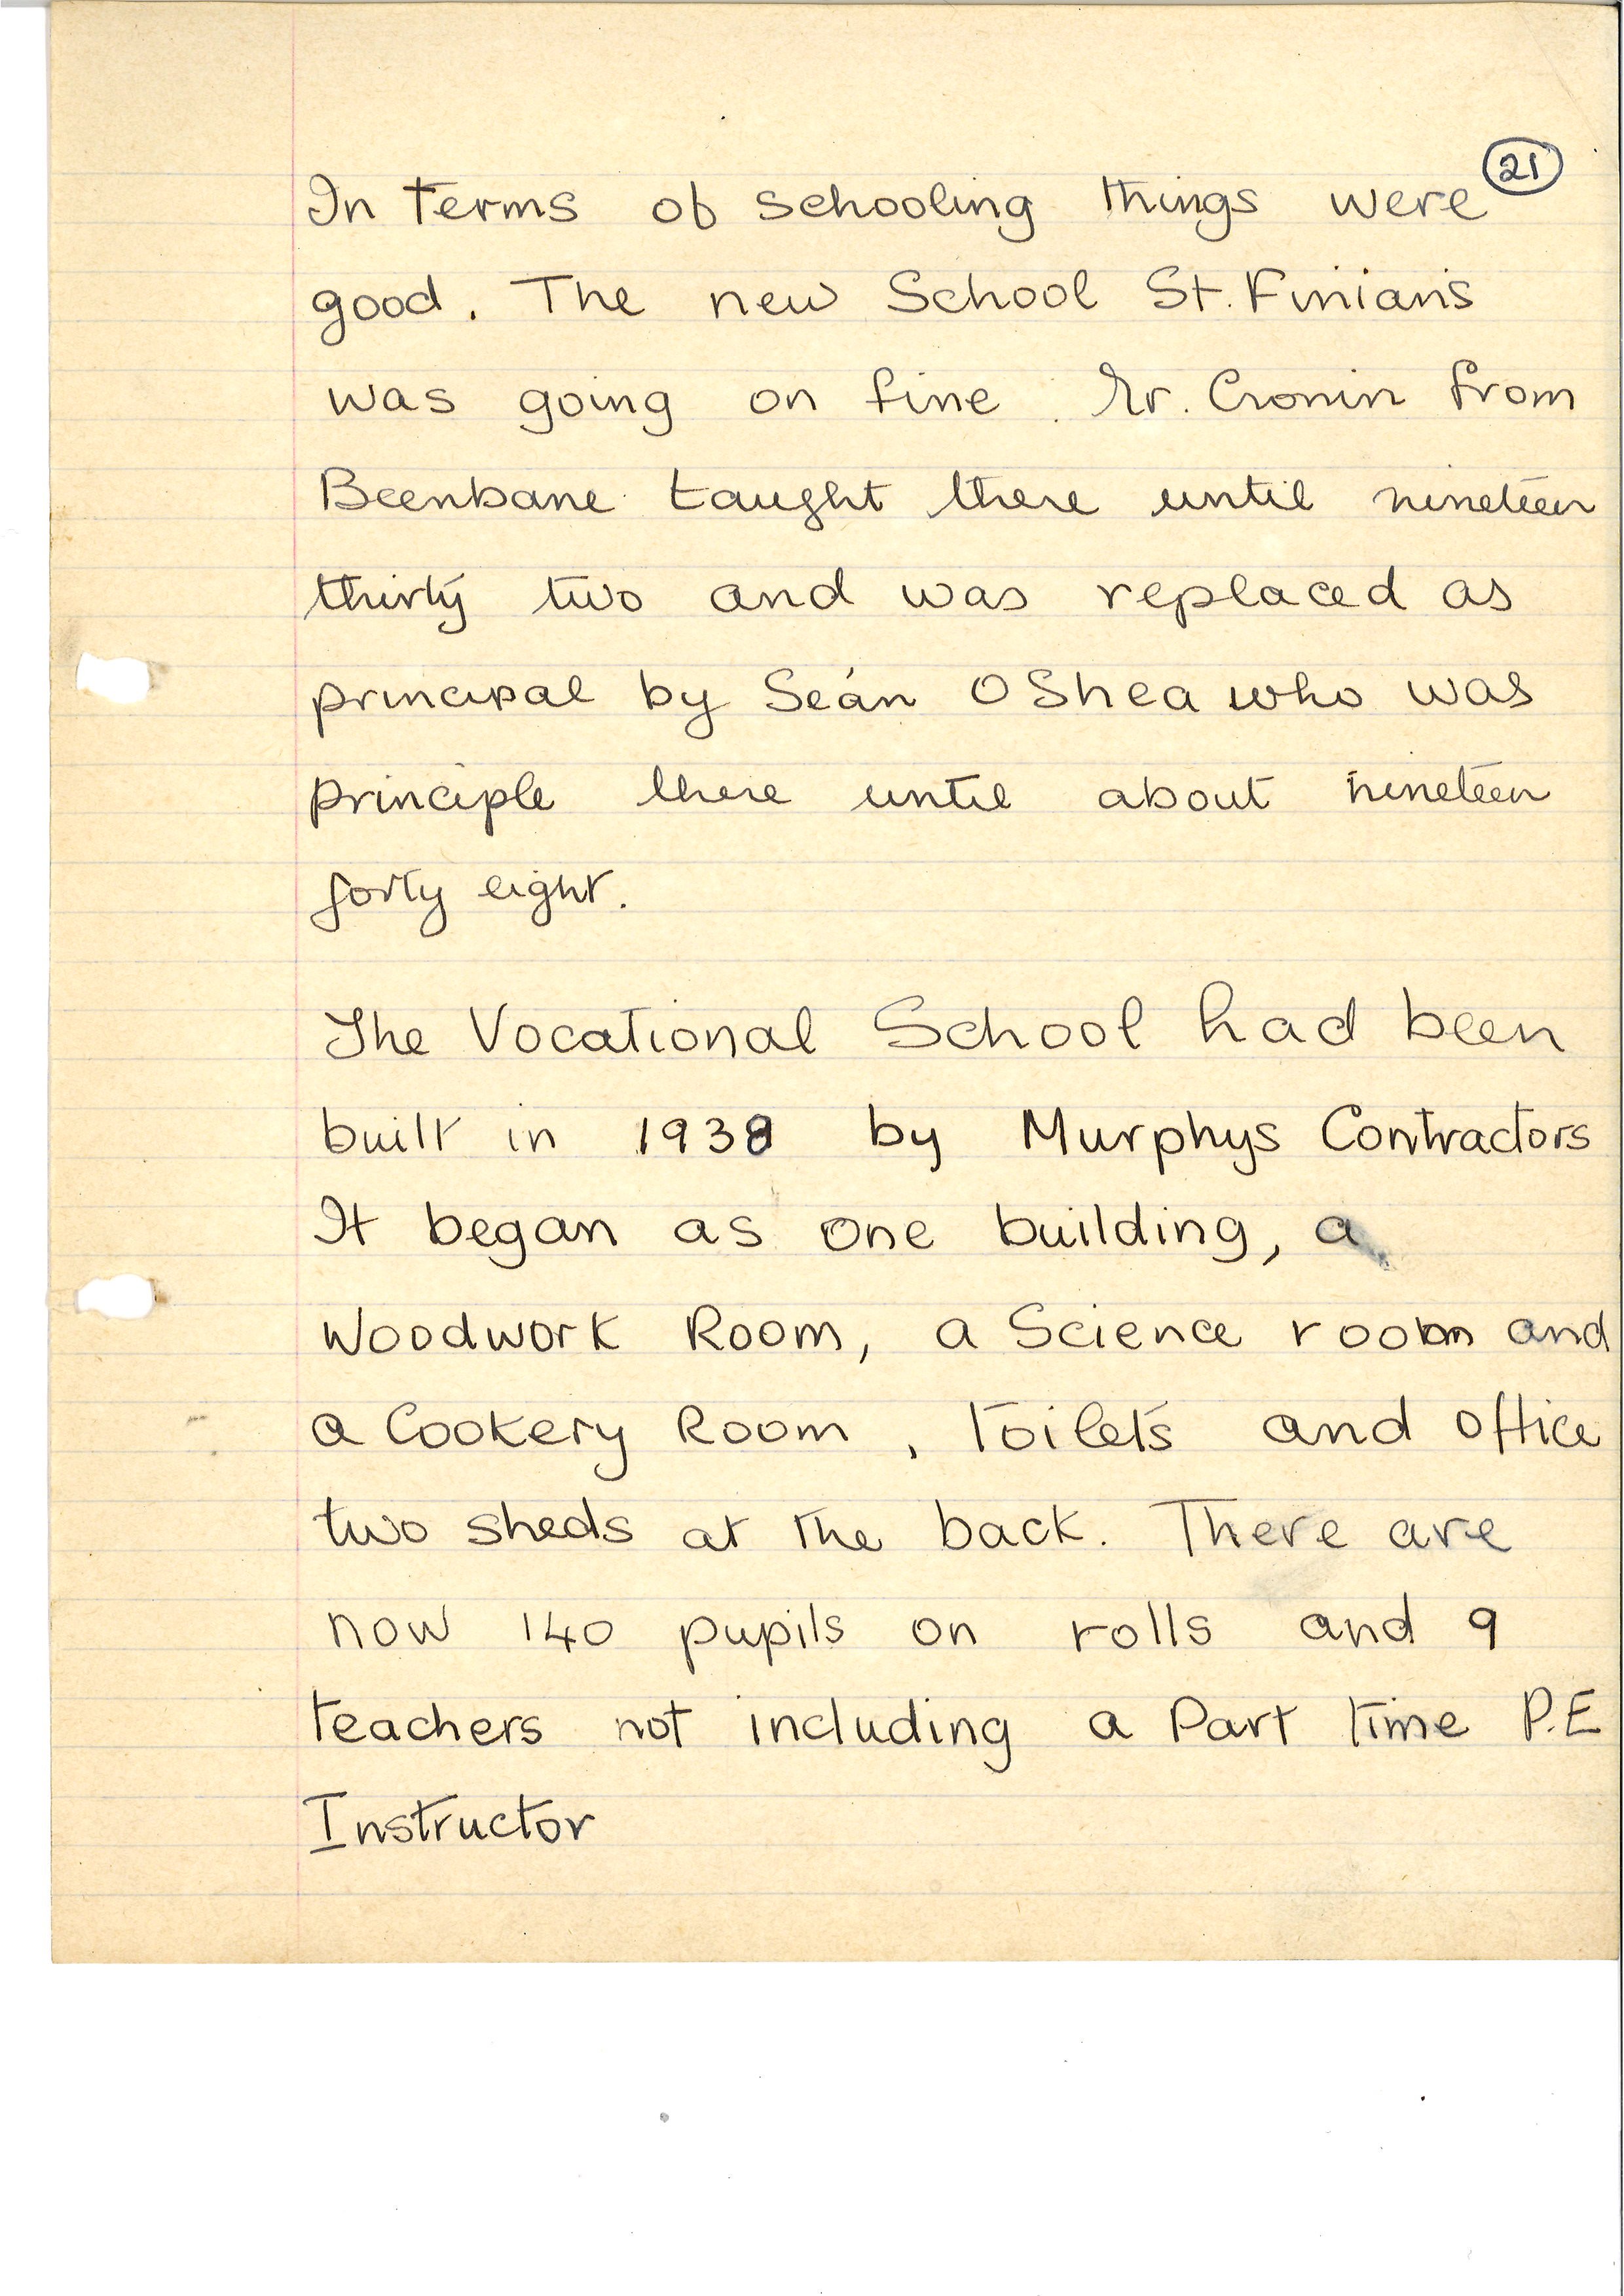 21
In terms of schooling things were
good. The new School St. Finian's
was going on fine. Mr. Cronin from
Beenbane taught there until nineteen
thirty two and was replaced as
principal by Seán O Shea who was
principle there until about nineteen
forty eight.
The Vocational School had been
built in 1938 by Murphys Contractors
It began as one building, a
Woodwork Room, a Science room and
a Cookery Room, Toilets and office
two sheds at the back. There are
now 140 pupils on rolls and 9
teachers not including a Part time P.E
Instructor